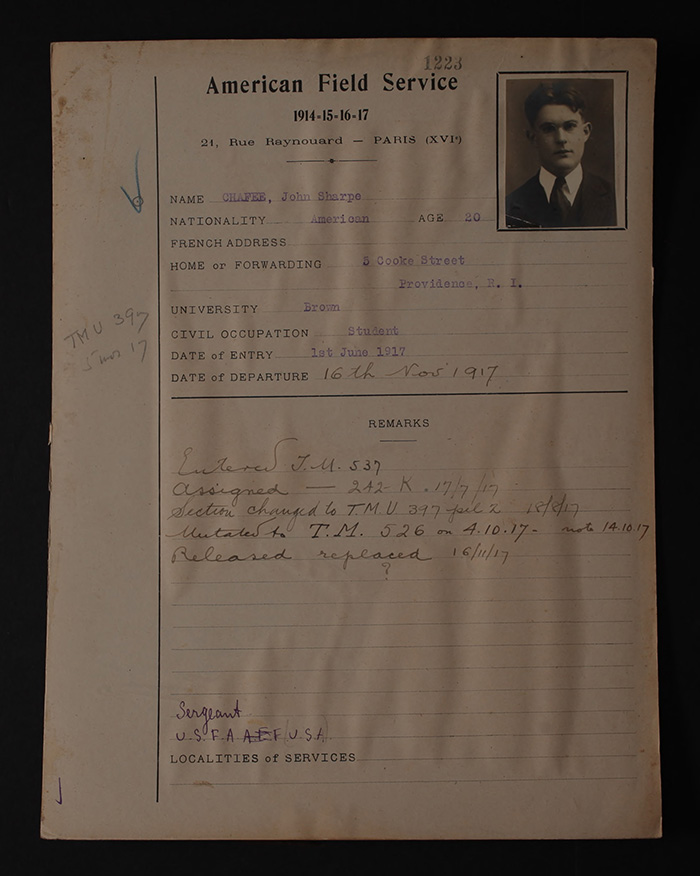 1223
American Field Service
1914-15-16-17
21, Rue Raynouard — PARIS (XVIe)
NAME CHAFEE, John Sharpe
NATIONALITY American AGE 20
FRENCH ADDRESS
HOME or FORWARDING 5 Cooke Street
Providence, R. I.
UNIVERSITY Brown
CIVIL OCCUPATION Student
DATE of ENTRY 1st June 1917
TMU 397
5 nov 17
DATE of DEPARTURE 16th Nov 1917
REMARKS
Entered T.M. 537
Assigned — 242-K. 17/7/17
Section changed to T.M.U. 397 18/8/17
Mutated to T.M. 526 on 4.10.17 - note 14.10.17
Released replaced 16/11/17
?
Sergeant
U.S.F.A. AEF (USA)
LOCALITIES of SERVICES